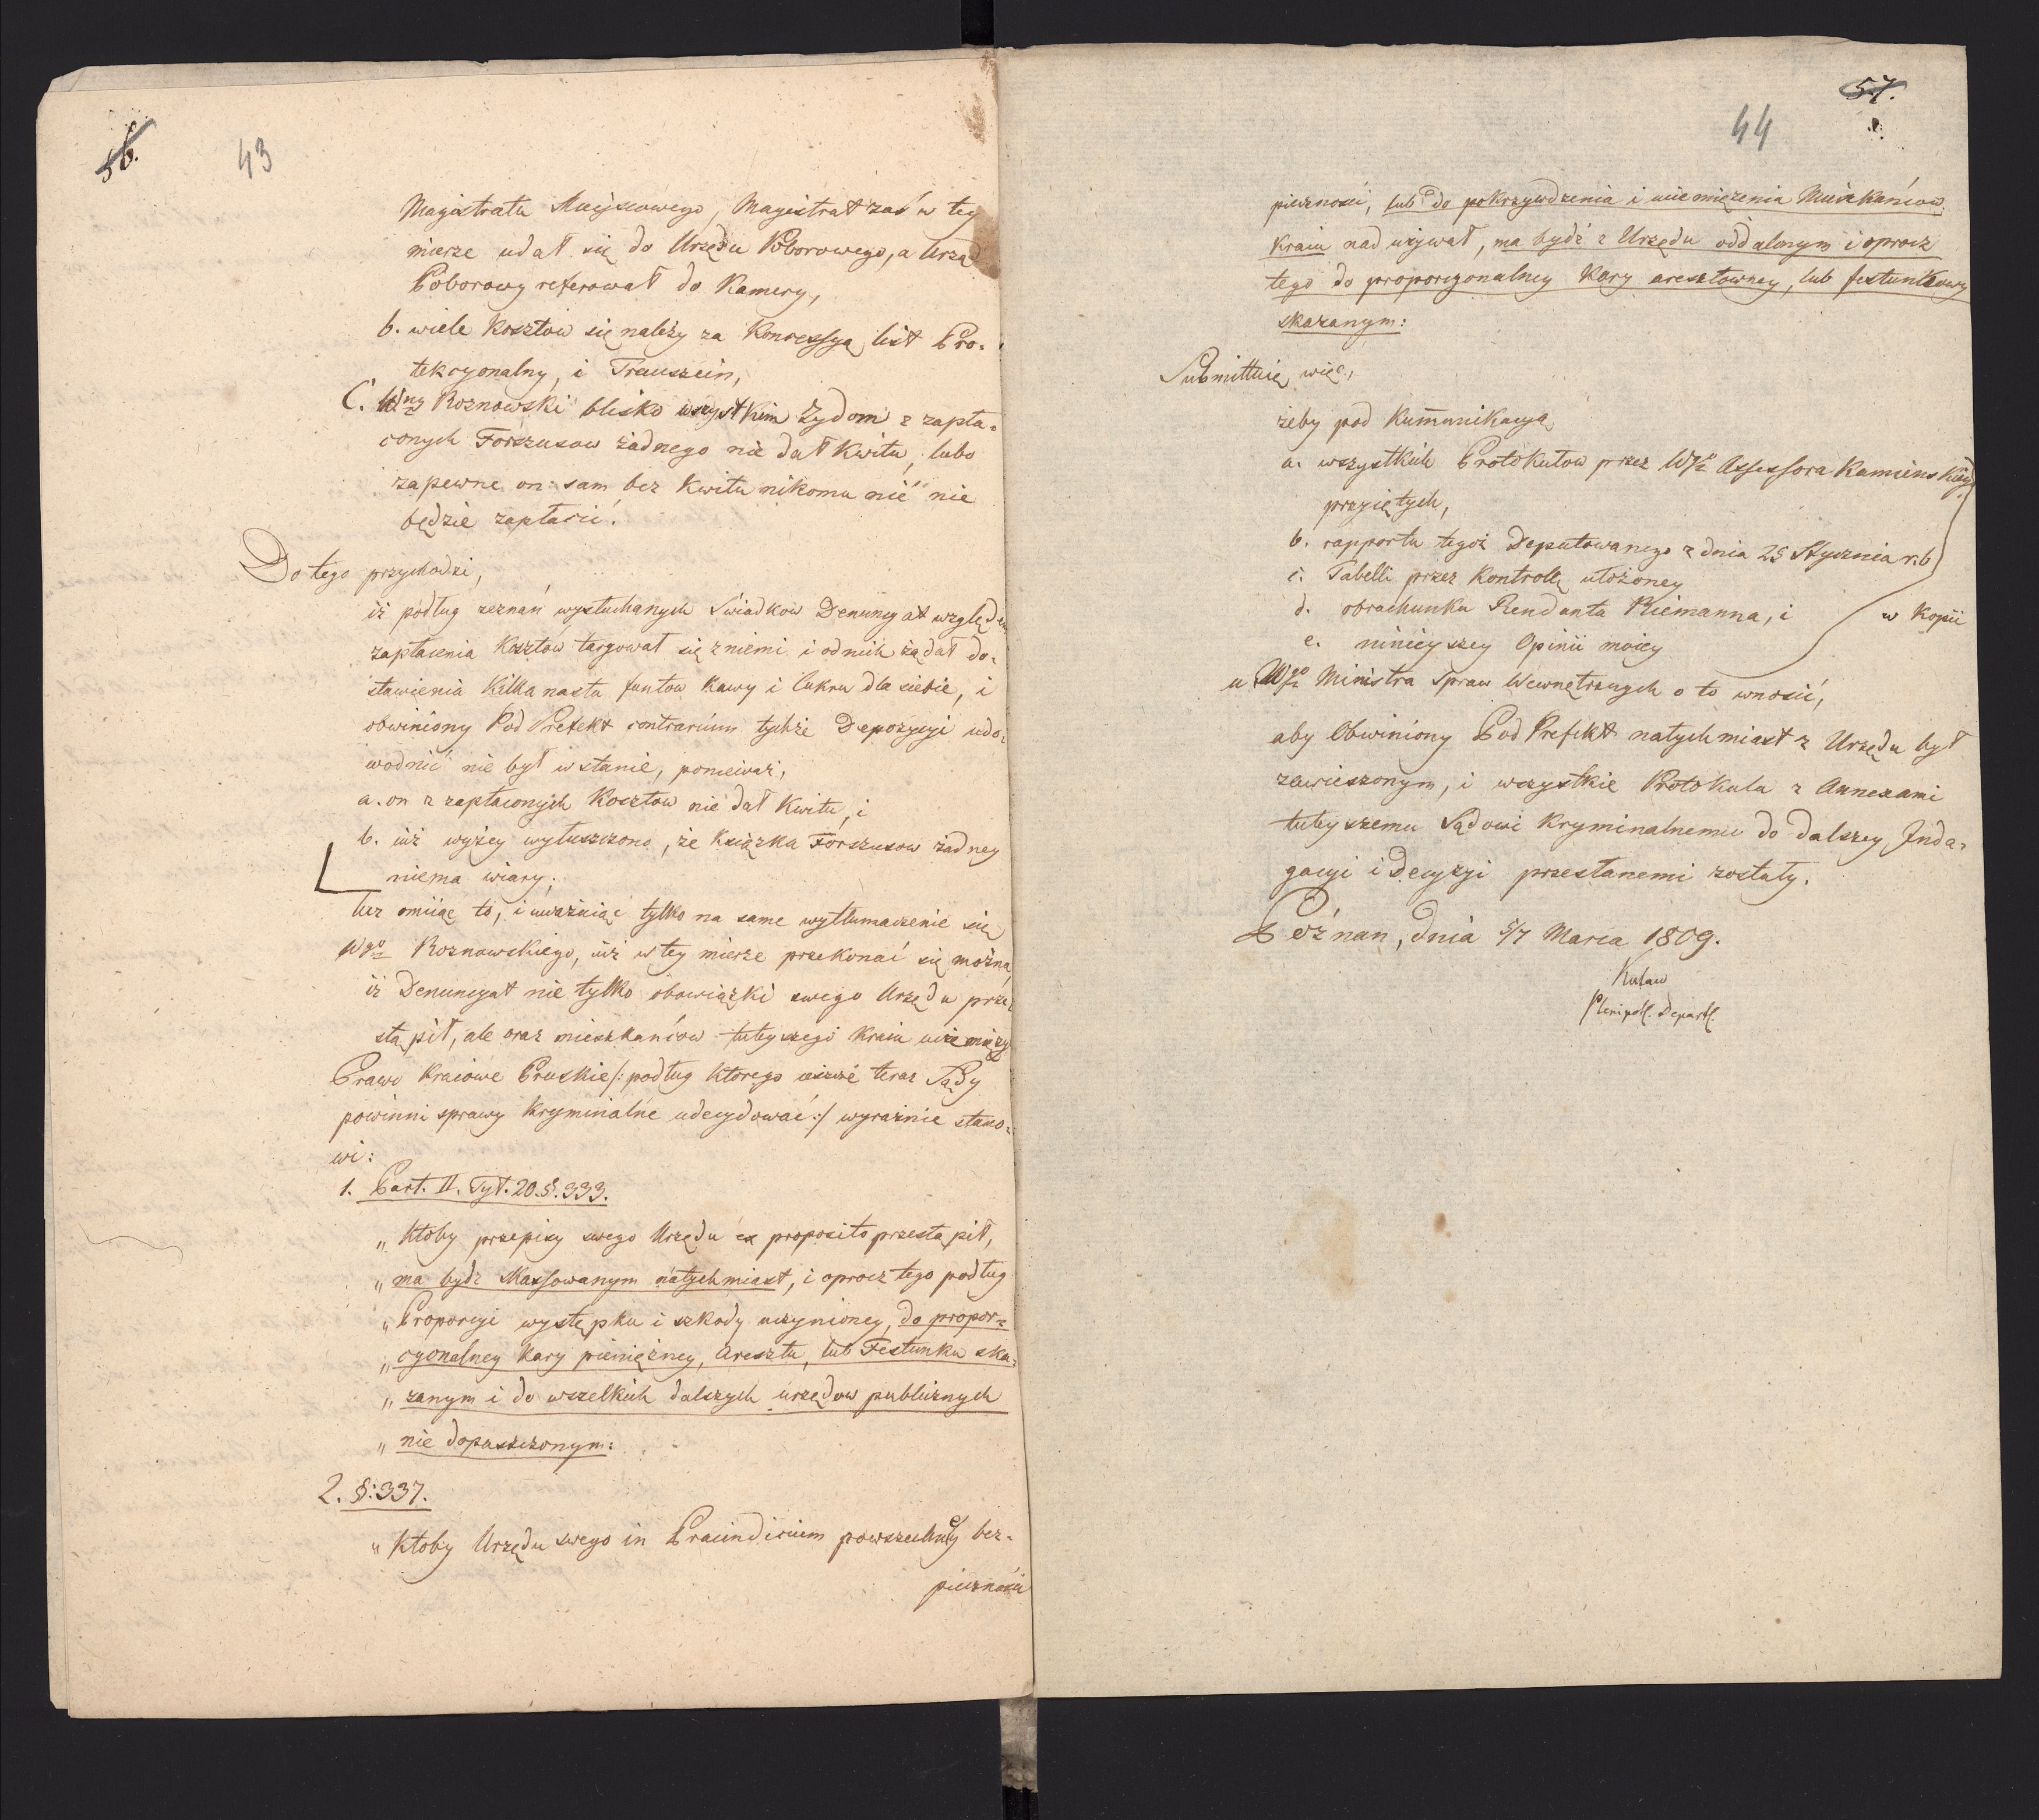 56.
43
Magistratu Mieyscowego, Magistrat zaś w tey
mierze udał się do Urzędu Poborowego, a Urząd
Poborowy referował do Kamery,
b. wiele kosztow się należy za Koncessyą list Pro=
tekcyonalny, i Trauszein,
C. Wny Roznowski blisko wszystkim Żydom z zapła=
conych Forszusow żadnego nie dał Kwitu, lubo
zapewne on sam bez Kwitu nikomu nić nie
będzie zapłacić.
Do tego przychodzi,
iż podług zeznań wysłuchanych Swiadkow Denuncyat względem
zapłacenia Kosztow targował się z niemi i od nich żądał do=
stawienia Kilkanastu funtow Kawy i Cukru dla siebie, i
obwiniony Pod Prefekt contrarium tychże Depozycyi udo=
wodnić nie był w stanie, ponieważ,
a. on z zapłaconych Kosztow nie dał Kwitu, i
b. iuż wyżey wyłuszczono, że Książka Forszusow żadney
niema wiary.
lecz omiiąc to, i uważaiąc tylko na same wytłumaczenie się
Wgo Roznowskiego, iuż w tey mierze przekonać się można,
iż Denuncyat nie tylko obowiązki swego Urzędu prze
stąpił, ale oraz mieszkańcow tuteyszego Kraiu uciemiężył
Prawo Kraiowe Pruskie /: podług ktorego ieszcze teraz Sądy
powinni sprawy Kryminalne udecydować :/ wyraźnie stano=
wi:
1. Part. II. Tyt. 20. §. 333.
„ Ktoby przepisy swego Urzędu ex proposito przestąpił,
„ ma bydź Kassowanym natychmiast, i oprocz tego podług
„ Proporcyi występku i szkody uczynioney, do propor=
„ cyonalney Kary pieniężney, Aresztu, lub Festunku ska=
„ zanym i do wszelkich dalszych urzędow publicznych
„ nie dopuszczonym:
2. §: 337.
„ Ktoby Urzędu swego in Praeiudicium powszechney bez=
pieczności
57.
44
pieczności, lub do pokrzywdzenia i uciemiężenia Mieszkańcow
Kraiu nad używał, ma bydź z Urzędu oddalonym i oprocz
tego do proporcyonalney Kary aresztowney, lub festunkowey
skazanym:
Submittuię więc,
żeby pod Kummunikacyą
a. wszystkich Protokułow przez Wgo Assessora Kamienskiego
przyiętych,
b. rapportu tegoż Deputowanego z dnia 25 Stycznia r. b
c. Tabelli przez Kontrollę ułożoney
d. obrachunku Rendanta Riemanna, i
w Kopii
e. ninieyszey Opinii moiey
u Wgo Ministra Spraw Wewnętrznych o to wnosić,
aby Obwiniony Pod Prefekt natychmiast z Urzędu był
zawieszonym, i wszystkie Protokuła z Annexami
tuteyszemu Sądowi Kryminalnemu do dalszey Inda=
gacyi i Decyzyi przesłanemi zostały.
Poznan, dnia 5/7 Marca 1809.
Plenipot. Depart.